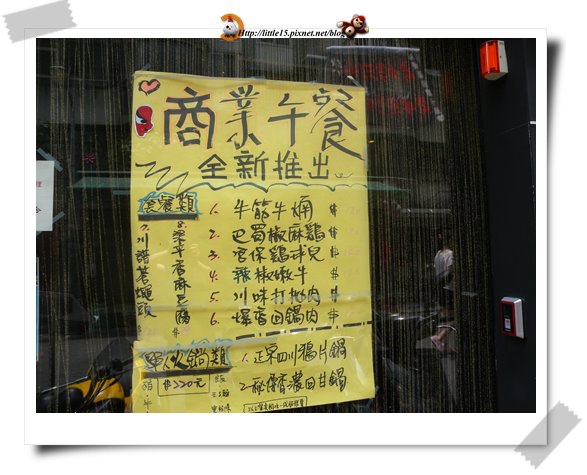 Http://little15.pixnet.net/blog
商業午餐
全新推出
套餐類
1. 牛筋牛腩 $
2. 巴蜀椒麻鷄 $
3. 宮保鷄球兒 $
4. 辣椒嫩牛 $
5. 川味打抛肉 $
6. 爆香回鍋肉 $
7. 川諸蒼蠅頭
8. 梁平香麻
單人火鍋類
$220元
1. 正宗四川鴉片鍋
2. 秘傳濃回甘鍋